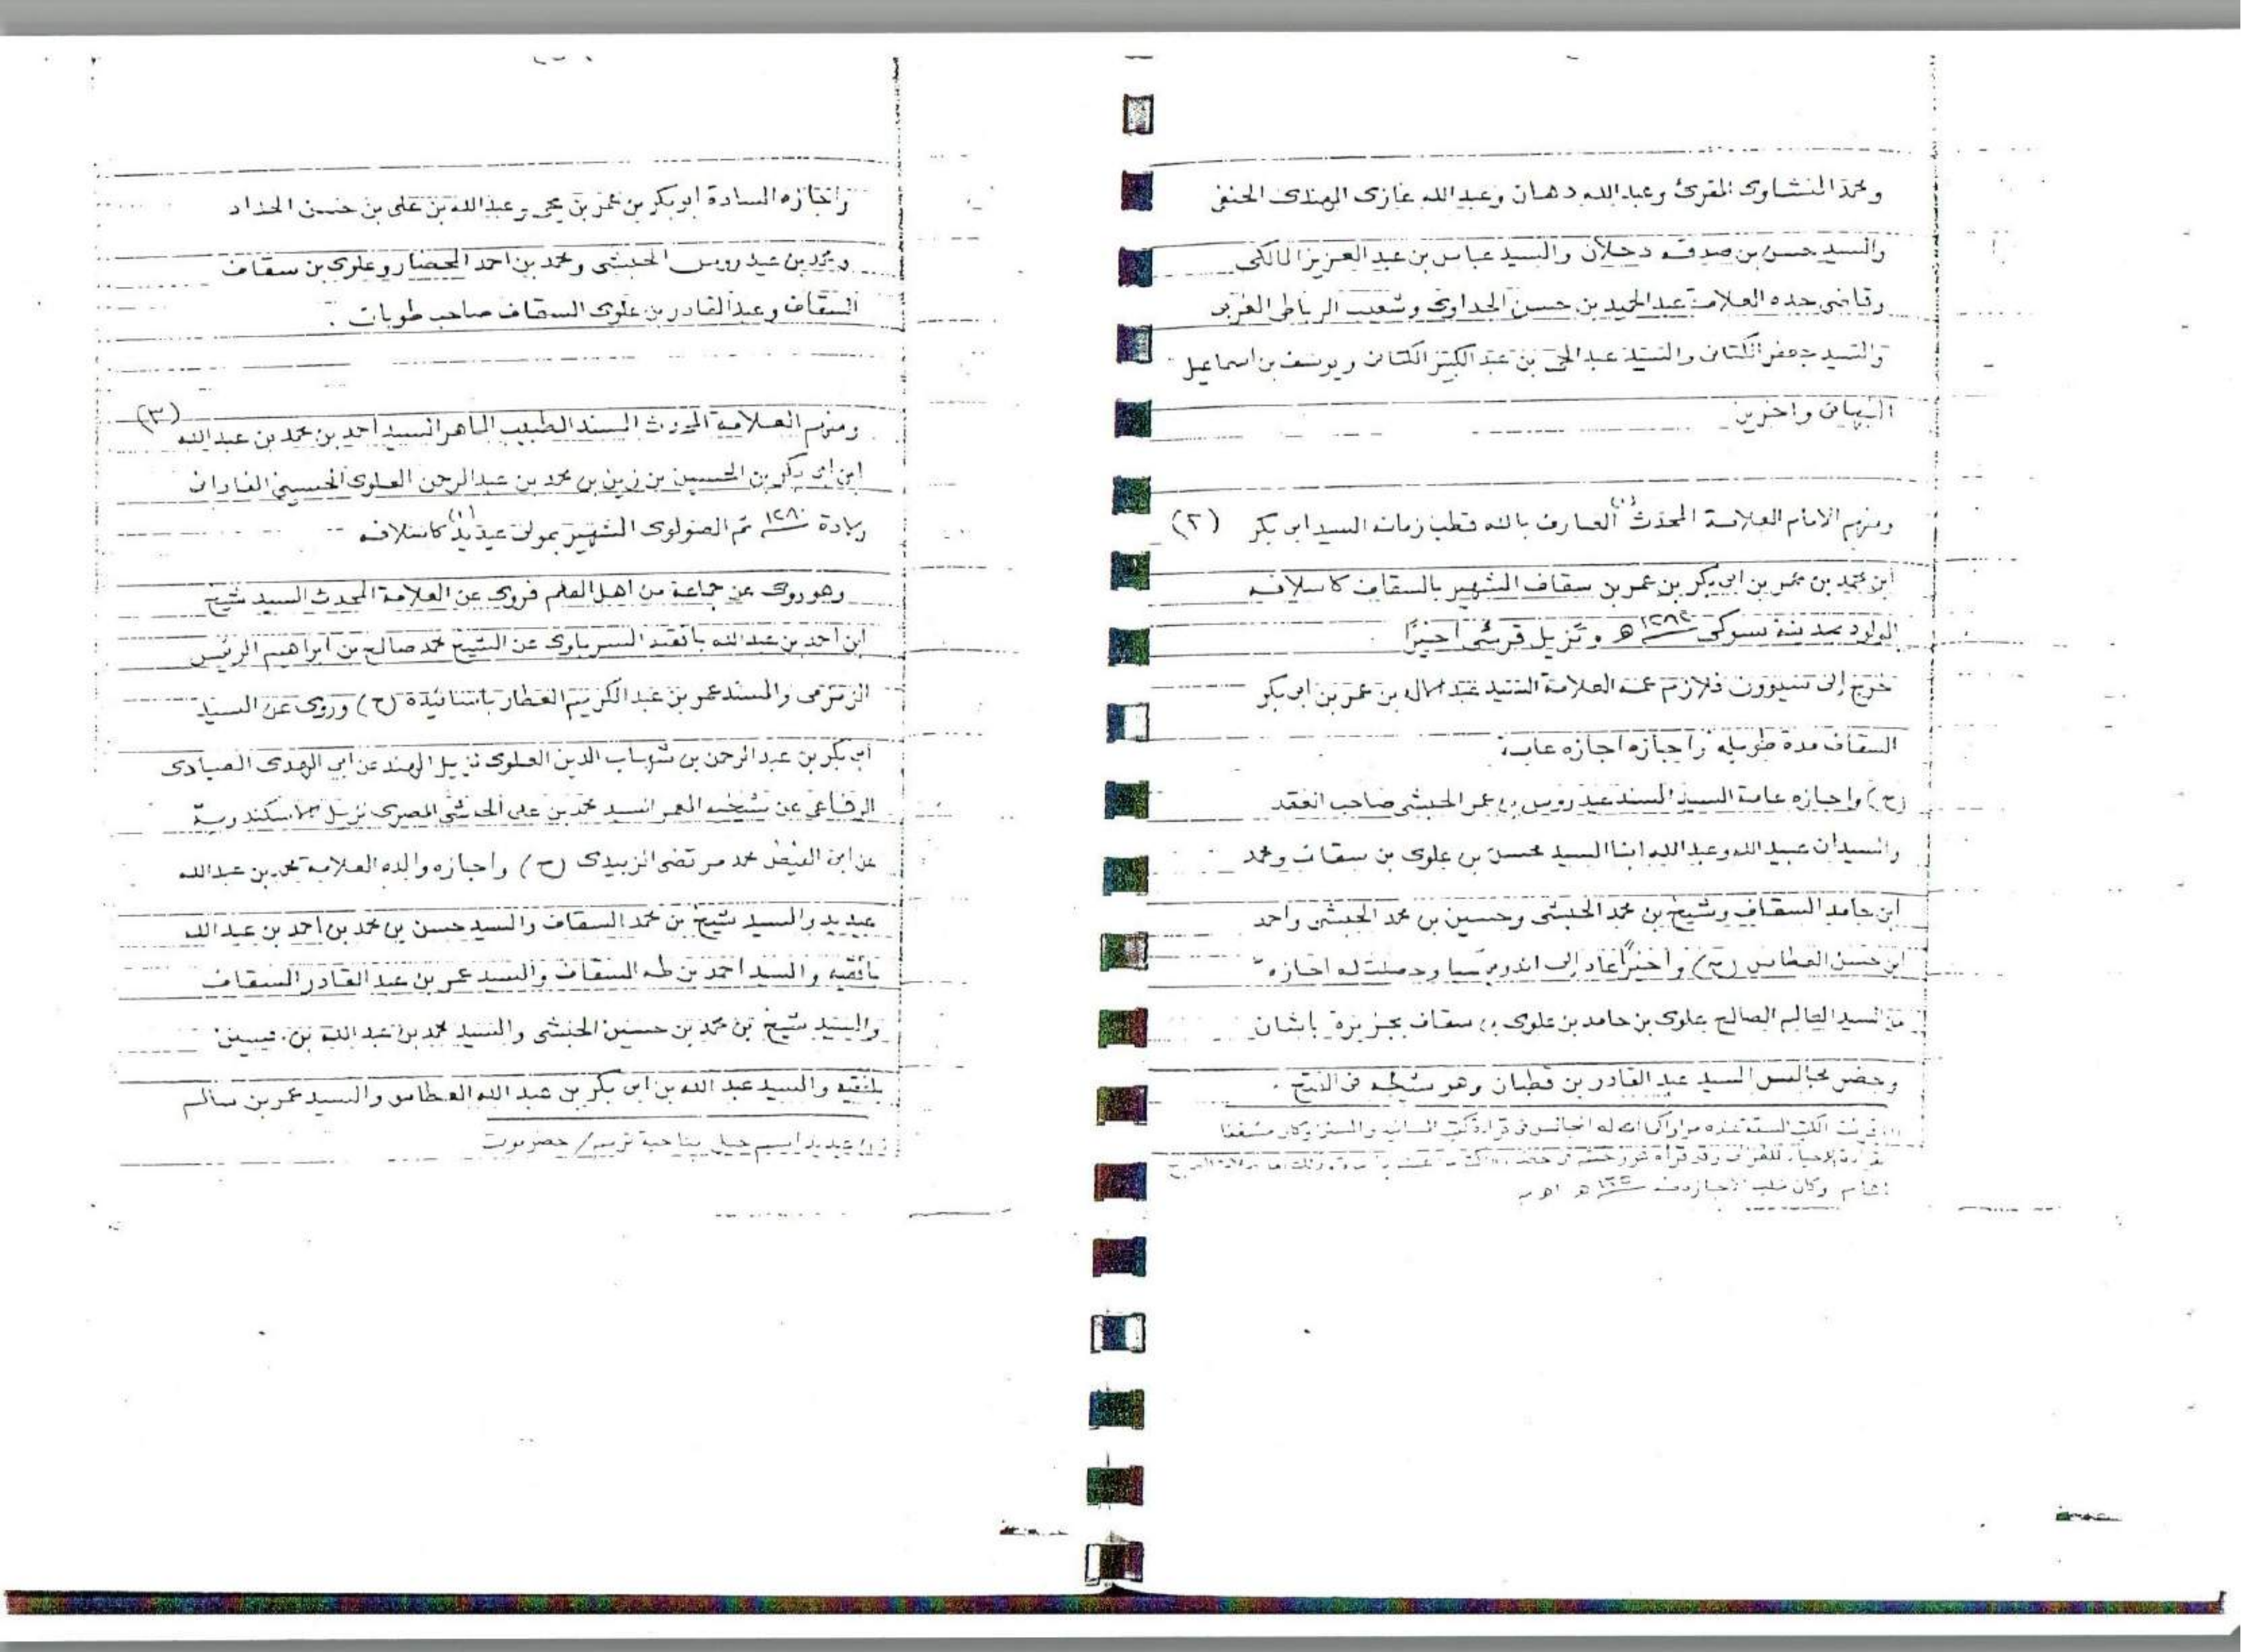 ومحمد النشاوى المقرئ وعبد الله دهان وعبد الله غازى الهندى الحنفى
والسيد حسن بن صدقه دحلان والسيد عباس بن عبد العزيز المالكى
وقاضى جده العلامة عبد الحميد بن حسن الجداوى وشعيب الرباطى المغربى
والسيد جعفر الكتانى والسيد عبد الحى بن عبد الكبير الكتانى ويوسف بن اسماعيل
النبهانى واخرين
ومنهم الامام العلامة المحدث (١) العارف بالله قطب زمانه السيد ابى بكر (٢)
ابن محمد بن عمر بن ابى بكر بن عمر بن سقاف الشهير بالسقاف كاسلافه
المولود بمدينة بسوكى ه ونزيل قرسئى اخيرًا
خرج إلى سيوون فلازم عمه العلامة السيد عبد الله بن عمر بن ابى بكر
السقاف مدة طويله واجازه اجازه عامة
(ح) واجازه عامة السيد المسند عيدروس بن عمر الحبشى صاحب العقد
والسيدان عبيد الله وعبد الله ابنا السيد محسن بن علوى بن سقاف ومحمد
ابن حامد السقاف وشيخ بن محمد الحبشى وحسين بن محمد الحبشى واحمد
ابن حسن العطاس (ح) واخيرًا عاد إلى اندونيسيا وحصلت له اجازه
من السيد العالم الصالح علوى بن حامد بن علوى بن سقاف بجزيرة باشان
وحضر مجالس السيد عبد القادر بن قطبان وهو شيخه فى الفتح .
(١) قرئت الكتب الستة عنده مرارا المجالس فى قراءة كتب المسانيد والسنن وكان مشغفا
بقراءة الاحياء للغزالى وقد قرأه
وكان طلب الاجازه منه ه اه
واجازه السادة ابو بكر بن عمر بن يحيى وعبد الله بن على بن حسن الحداد
ومحمد بن عيدروس الحبشى ومحمد بن احمد المحضار وعلوى بن سقاف
السقاف وعبد القادر بن علوى السقاف صاحب طوبان .
ومنهم العلامة المحدث المسند الطبيب الماهر السيد احمد بن محمد بن عبد الله (٣)
ابن ابى بكر بن الحسين بن زين بن محمد بن عبد الرحمن العلوى الحسينى الفادانى
ولادة ١٢٨٠ ثم الصولوى الشهير بمولى عيديد (١) كاسلافه
وهو روى عن جماعة من اهل العلم فروى عن العلامة المحدث السيد شيخ
ابن احمد بن عبد الله بافقيه السرباوى عن الشيخ محمد صالح بن ابراهيم الرئيس
الزمزمى والمسند عمر بن عبد الكريم العطار باسانيده (ح) وروى عن السيد
ابى بكر بن عبد الرحمن بن شهاب الدين العلوى نزيل الهند عن ابى الهدى الصيادى
الرفاعى عن شيخه المعمر السيد محمد بن على الحدشى المصرى نزيل الاسكندرية
عن ابى الفيض محمد مرتضى الزبيدى (ح) واجازه والده العلامة محمد بن عبد الله
عيديد والسيد شيخ بن محمد السقاف والسيد حسن بن محمد بن احمد بن عبد الله
بافقيه والسيد احمد بن طه السقاف والسيد عمر بن عبد القادر السقاف
والسيد شيخ بن محمد بن حسين الحبشى والسيد محمد بن عبد الله بن
بلفقيه والسيد عبد الله بن ابى بكر بن عبد الله العطاس والسيد عمر بن سالم
(١) عيديد اسم جبل بناحية تريم / حضرموت